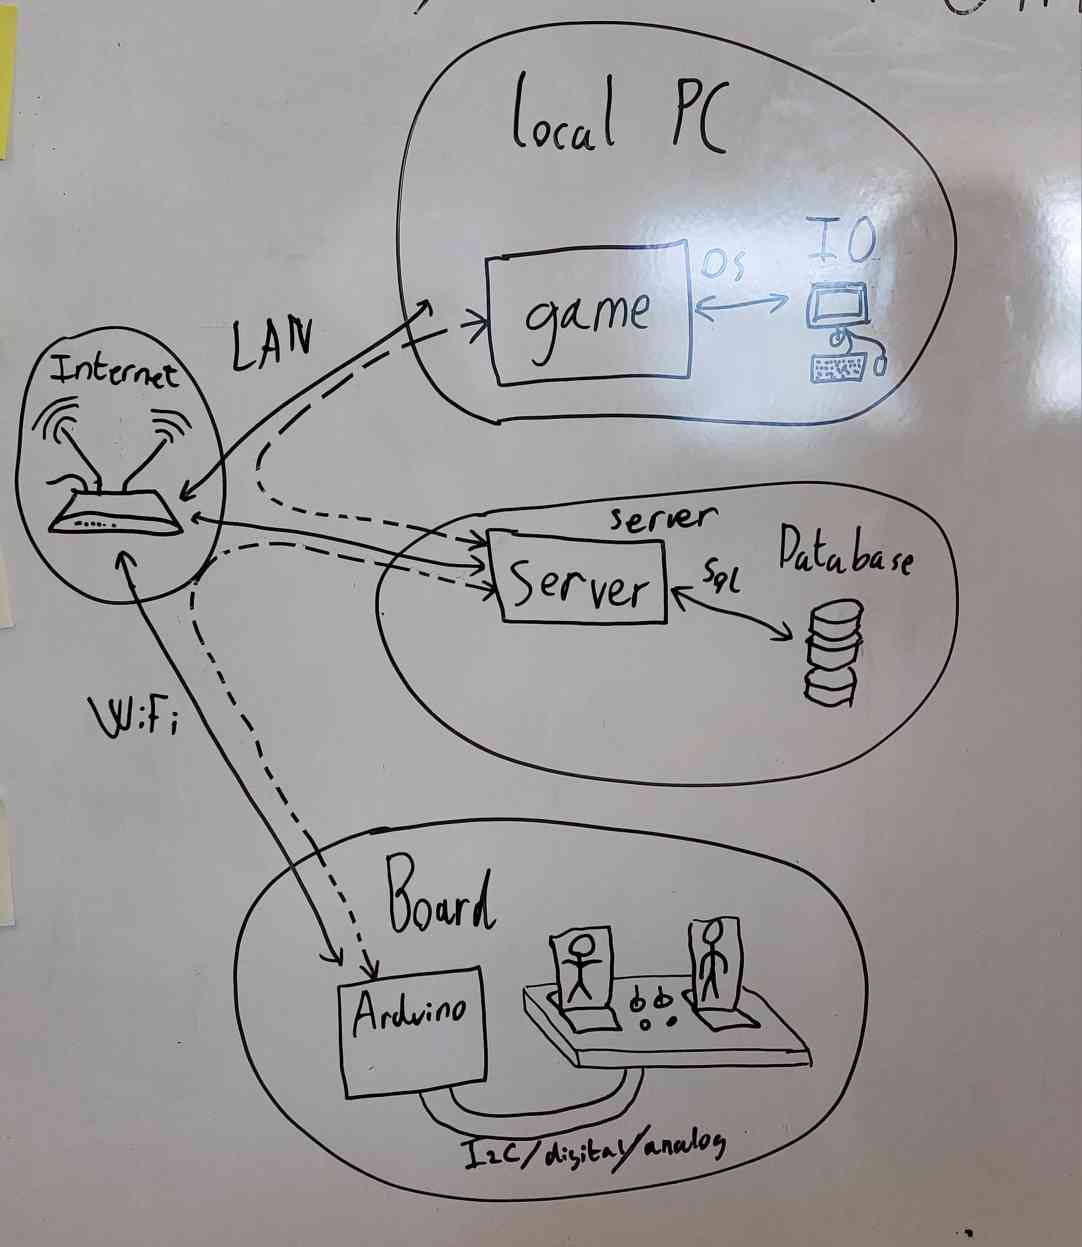 local PC
IO
OS
game
LAN
Internet
server
Server
Sql
Database
WiFi
Board
Arduino
I2C/digital/analog